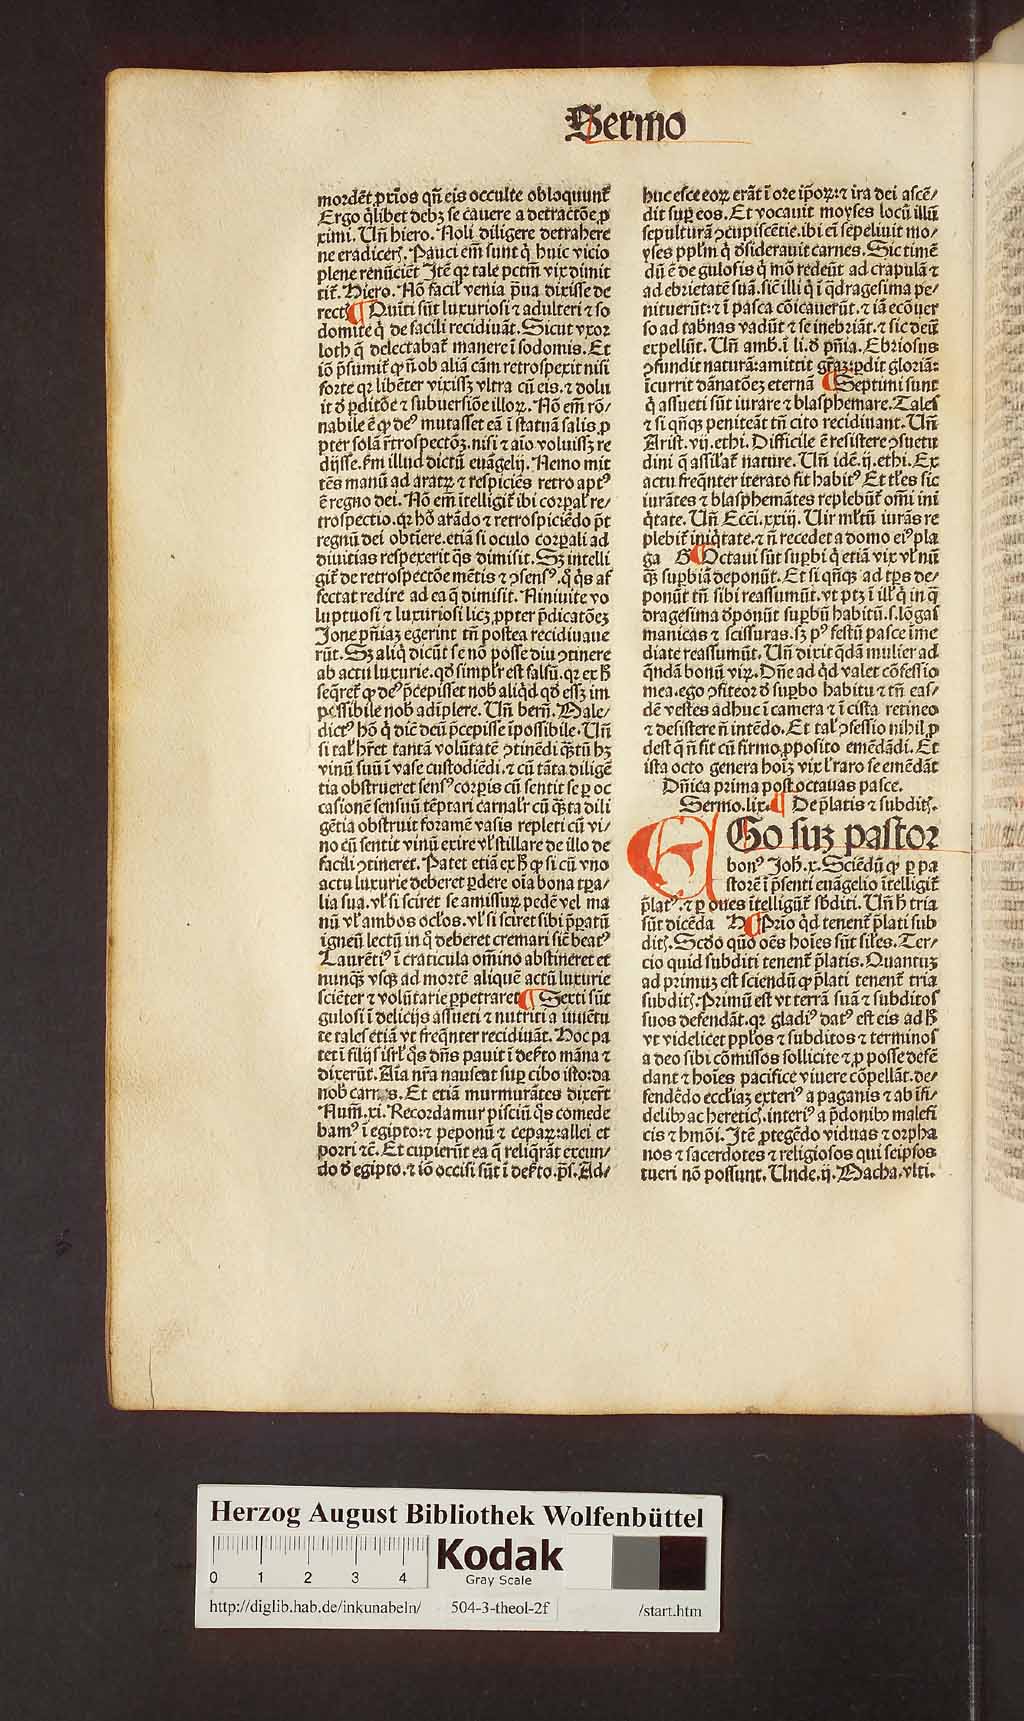 Sermo
mordēt ꝓxīos qn̄ eis occulte obloquunt᷑
Ergo qͥlibet debꝫ se cauere a detractōe ꝓ
ximi. Vn̄ hiero. Noli diligere detrahere
ne eradiceris. Pauci em̄ sunt qͥ huic vicio
plene renūciēt Itē qꝛ tale pctm̄ vix dimit
tit᷑. Hiero. Nō facil᷑ venia ꝓua dixisse de
rect ¶ Quīti sūt luxuriosi ⁊ adulteri ⁊ so
domite qͥ de facili recidiuāt. Sicut vxor
loth q̄ delectabat᷑ manere ī sodomis. Et
iō p̄sumit᷑ ꝙ nō ob aliā cām retrospexit nisi
forte qꝛ libēter vixissꝫ vltra cū eis. ⁊ dolu
it ð ꝑditōe ⁊ subuersiōe illoꝝ. Nō em̄ rō⸗
nabile ē ꝙ deꝰ mutasset eā ī statuā salis ꝓ
pter solā r̄trospectōꝫ. nisi ⁊ aīo voluissꝫ re
dijsse. ẜm illud dictū euāgelij. Nemo mit
tēs manū ad aratꝝ ⁊ respiciēs retro aptꝰ
ē regno dei. Nō em̄ ītelligit᷑ ibi corꝑal᷑ re⸗
trospectio. qꝛ hō arādo ⁊ retrospiciēdo pōt
regnū dei obtīere. etiā si oculo corꝑali ad
diuitias respexerit qͣs dimisit. Sꝫ intelli
git᷑ de retrospectōe mētis ⁊ ꝯsensꝰ. qͦ qͥs af
fectat redire ad ea q̄ dimisit. Niniuite vo
luptuosi ⁊ luxuriosi licꝫ ꝓpter p̄dicatōeꝫ
Jone pn̄iaꝫ egerint tn̄ postea recidiuaue
rūt. Sꝫ aliqͥ dicūt se nō posse diu ꝯtinere
ab actu luxurie. qd̄ simpl᷑r est falsū. qꝛ ex ħ
seqͣret᷑ ꝙ deꝰ p̄cepisset nob̄ aliqͥd qd̄ essꝫ im
possibile nob̄ adīplere. Vn̄ bern̄. Male⸗
dictꝰ hō qͥ dic̄ deū p̄cepisse īpossibile. Vn̄
si tal᷑ hr̄et tantā volūtatē ꝯtinēdi qͣꝫtū hꝫ
vinū suū ī vase custodiēdi. ⁊ cū tāta diligē
tia obstrueret sensꝰ corꝑis cū sentit se ꝑ oc
casionē sensuū tēptari carnal᷑r cū qͣꝫta dili
gētia obstruit foramē vasis repleti cū vi⸗
no cū sentit vinū exire vl᷑ stillare de illo de
facili ꝯtineret. Patet etiā ex ħ ꝙ si cū vno
actu luxurie deberet ꝑdere oīa bona tꝑa⸗
lia sua. vl᷑ si sciret se amissuꝝ pedē vel ma
nū vl᷑ ambos ocl᷑os. vl᷑ si sciret sibi p̄ꝑatū
igneū lectū in qͦ deberet cremari sic̄ beatꝰ
Laurētiꝰ ī craticula om̄ino abstineret et
nunqͣꝫ vsqꝫ ad mortē aliquē actū luxurie
sciēter ⁊ volūtarie ꝑpetraret ¶ Sexti sūt
gulosi ī delicijs assueti ⁊ nutriti a iuuētu
te tales etiā vt freqn̄ter recidiuāt. Hoc pa
tet ī filijs isrl̄ qͦs dn̄s pauit ī deẜto māna ⁊
dixerūt. Aīa nr̄a nauseat suꝑ cibo isto: da
nob̄ carnes. Et etiā murmurātes dixer̄t
Num̄. xi. Recordamur pisciū qͦs comede
bamꝰ ī egipto: ⁊ peponū ⁊ cepaꝝ: allei et
porri ⁊c̄. Et cupierūt ea q̄ reliqͣrāt exeun⸗
do ð egipto. ⁊ iō occisi sūt ī deẜto. ps̄. Ad⸗
huc esce eoꝝ erāt ī ore ip̄oꝝ: ⁊ ira dei ascē⸗
dit suꝑ eos. Et vocauit moyses locū illū
sepulturā ꝯcupiscētie. ibi em̄ sepeliuit mo⸗
yses ppl᷑m qͥ ð̄siderauit carnes. Sic timē
dū ē de gulosis qͥ mō redeūt ad crapulā ⁊
ad ebrietatē suā. sic̄ illi qͥ ī qͣdragesima pe⸗
nituerūt: ⁊ ī pasca cōicauerūt. ⁊ iā ecōuer
so ad tab̄nas vadūt ⁊ se inebriāt. ⁊ sic deū
expellūt. Vn̄ amb̄. ī li. ð pn̄ia. Ebriosus
ꝯfundit naturā: amittit gr̄aꝫ: ꝑdit gloriā:
īcurrit dānatōeꝫ eternā ¶ Septimi sunt
qͥ assueti sūt iurare ⁊ blasphemare. Tales
⁊ si qn̄qꝫ peniteāt tn̄ cito recidiuant. Vn̄
Arist. vij. ethi. Difficile ē resistere ꝯsuetu
dini q̄ assil᷑at᷑ nature. Vn̄ idē. ij. ethi. Ex
actu freqn̄ter iterato fit habitꝰ Et tl᷑es sic
iurātes ⁊ blasphemātes replebūt᷑ om̄i ini
qͥtate. Vn̄ Ecci. xxiij. Vir ml᷑tū iurās re
plebit᷑ iniqͥtate. ⁊ nō recedet a domo eiꝰ pla
ga B ¶ Octaui sūt suꝑbi qͥ etiā vix vl᷑ nū
qͣꝫ suꝑbiā deponūt. Et si qn̄qꝫ ad tꝑs de⸗
ponūt tn̄ sibi reassumūt. vt ptꝫ ī ill᷑ qͥ in qͣ
dragesima ð̄ponūt suꝑbū habitū. s. lōgas
manicas ⁊ scissuras. sꝫ pꝰ festū pasce īme
diate reassumūt. Vn̄ dixit qͥdā mulier ad
qn̄dā bonū viꝝ. Dn̄e ad qͥd valet cōfessio
mea. ego ꝯfiteor ð suꝑbo habitu ⁊ tn̄ eas⸗
dē vestes adhuc ī camera ⁊ ī cista retineo
⁊ desistere nō intēdo. Et tal᷑ ꝯfessio nihil ꝓ
dest q̄ nō fit cū firmo ꝓposito emēdādi. Et
ista octo genera hoīꝫ vix l᷑ raro se emēdāt
Dn̄ica prima post octauas pasce.
Sermo. lix. ¶ De p̄latis ⁊ subdit̄.
EGo suꝫ pastor
bonꝰ Joh̄. x. Sciēdū ꝙ ꝑ pa
storē ī p̄senti euāgelio ītelligit᷑
p̄latꝰ. ⁊ ꝑ oues ītelligūt᷑ sb̄diti. Vn̄ h̄ tria
sūt dicēda A ¶ Prīo qͥd tenent᷑ p̄lati sub
dit̄. Scd̄o quō oēs hoīes sūt siles. Ter⸗
cio quid subditi tenent᷑ p̄latis. Quantuꝫ
ad primuꝫ est sciendū ꝙ p̄lati tenent᷑ tria
subdit̄. Primū est vt terrā suā ⁊ subditos
suos defendāt. qꝛ gladiꝰ datꝰ est eis ad ħ
vt videlicet ppl᷑os ⁊ subditos ⁊ terminos
a deo sibi cōmissos sollicite ⁊ ꝓ posse defē
dant ⁊ hoīes pacifice viuere cōpellāt. de⸗
fendēdo eccl᷑iaꝫ exteriꝰ a paganis ⁊ ab īfi⸗
delibꝰ ac heretic̄. interiꝰ a p̄donibꝰ malefi
cis ⁊ hm̄ōi. Itē ꝓtegēdo viduas ⁊ orpha
nos ⁊ sacerdotes ⁊ religiosos qui seipsos
tueri nō possunt. Unde. ij. Macha. vlti.
Herzog August Bibliothek Wolfenbüttel
0 1 2 3 4
Kodak
Gray Scale
http://diglib.hab.de/inkunabeln/ 504-3-theol-2f /start.htm